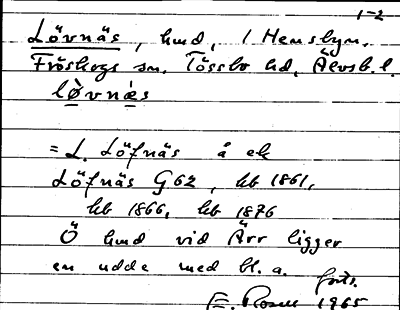 1-2
Lövnäs, hmd, 1 Hemsbyn.
Fröskogs sn. Tössbo hd, Älvsb. l.
lö̀vnæs
= L. Löfnäs å ek
Löfnäs G62, kb 1861,
kb 1866, kb 1876
Ö hmd vid Ärr ligger
en udde med bl. a. forts.
E. Rosell 1965